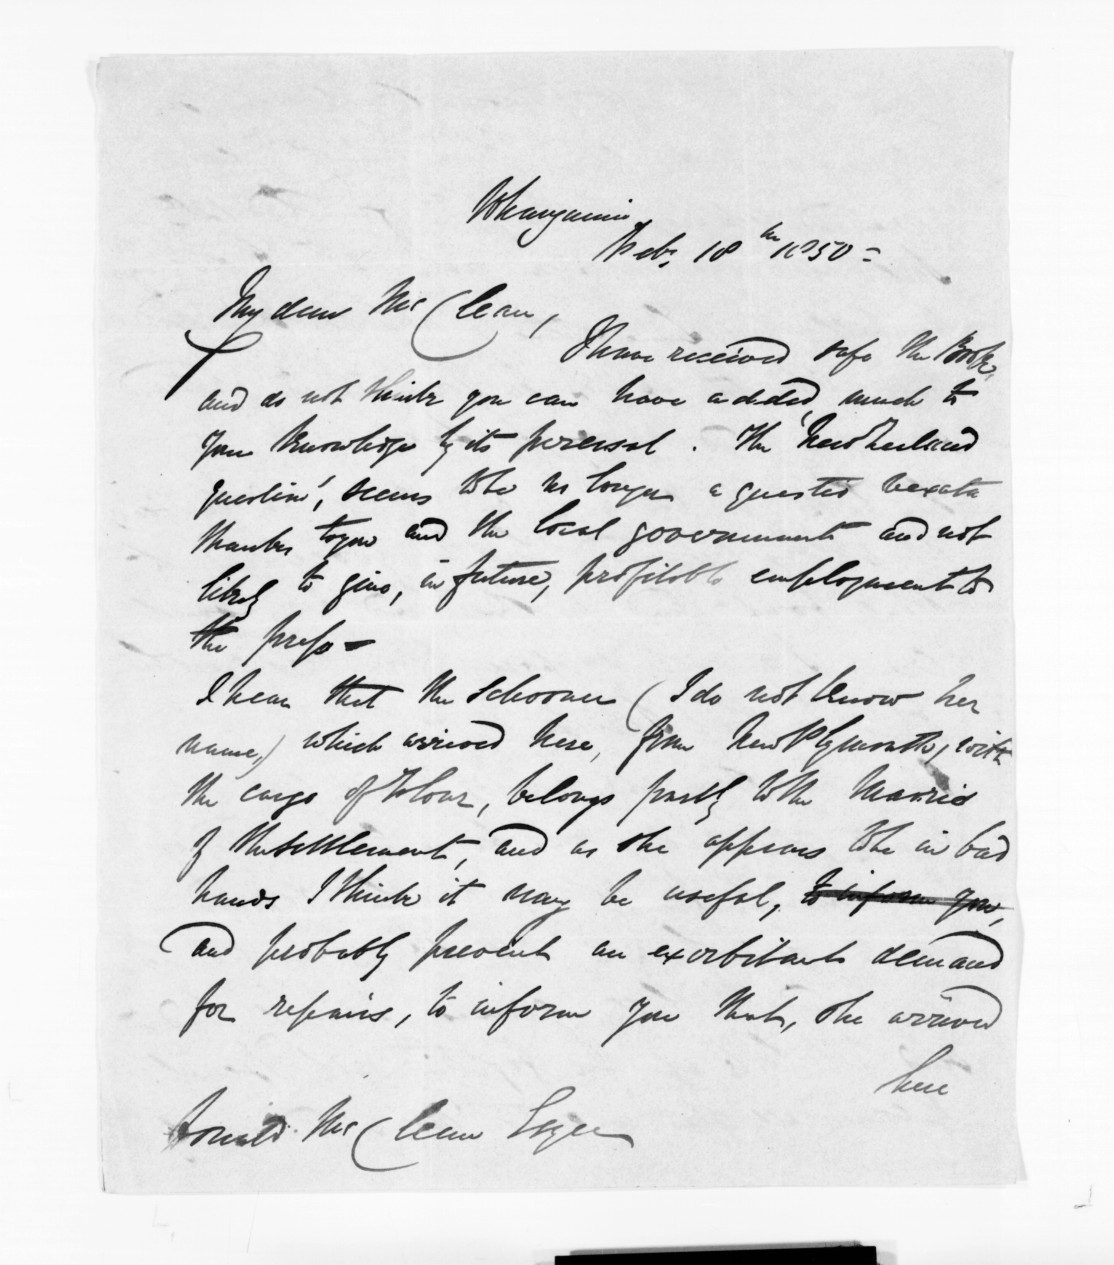 Whanganui
Feb. 18th 1850 =
My dear Mc Clean,
I have received safe the Book,
and do not think you can have added much to
your knowledge by its perusal. The 'New Zealand
question', seems to be no longer a questio vexata
thanks to you and the local government and not
likely to give, in future, profitable employment to
the press -
I hear that the Schooner (I do not know her
name,) which arrived here, from New Plymouth, with
the cargo of flour, belongs partly to the Maories
of the settlement, and as she appears to be in bad
hands I think it may be useful, to inform you,
and probably prevent an exorbitant demand
for repairs, to inform you that, she arrived
here
Donald Mc Clean Esqre